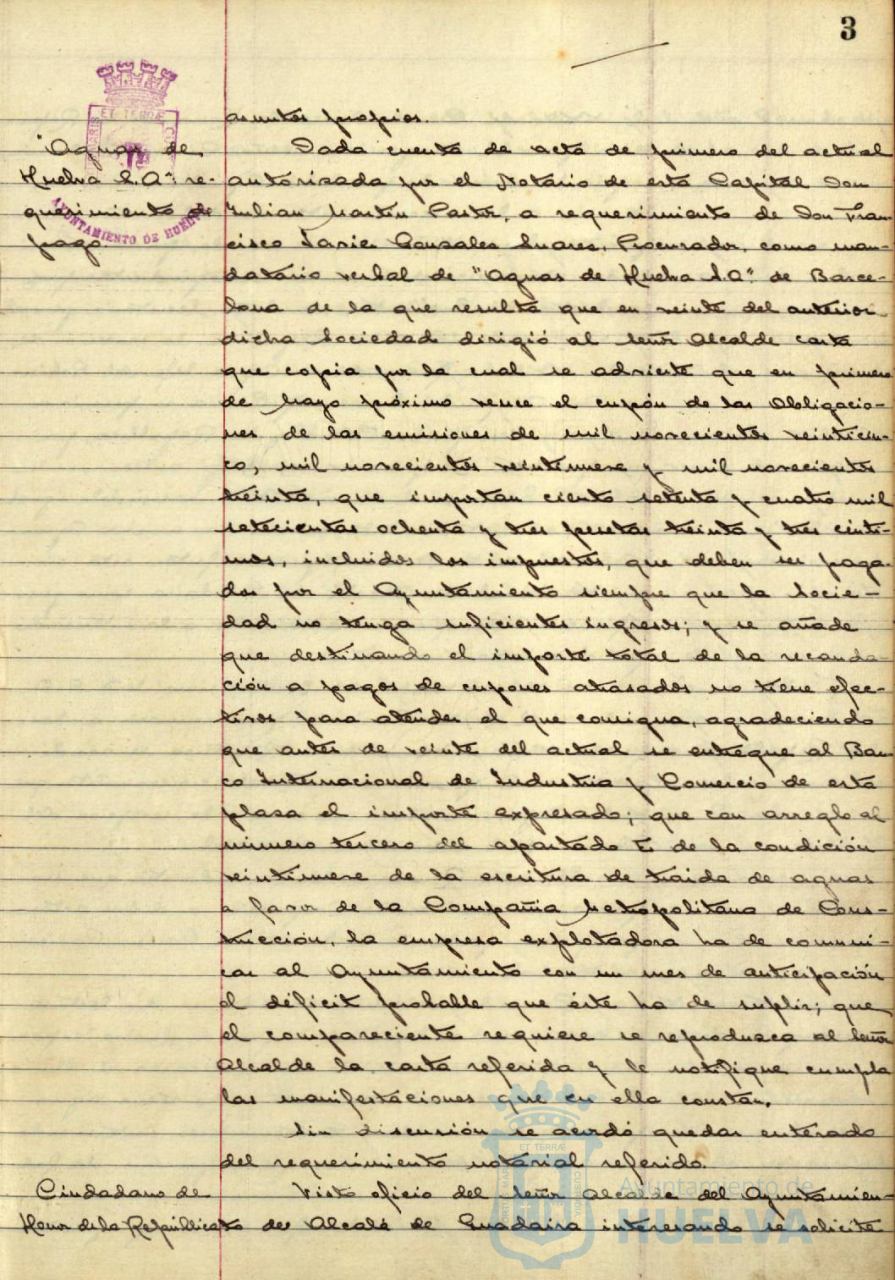 3
asuntos propios.
"Aguas de
Huelva S.A" re-
querimiento de
pago.
Dada cuenta de acta de primero del actual
autorizada por el Notario de esta Capital Don
Julian Martin, a requerimiento de Don Fran-
cisco Gonzalez Suarez, Procurador, como man-
datario verbal de "Aguas de Huelva S.A." de Barce-
lona de la que resulta que en veinte del anterior
dicha Sociedad dirigió al Señor Alcalde carta
que copia por la cual se advierte que en primero
de Mayo próximo vence el cupón de las Obligacio-
nes de las emisiones de mil novecientos veinticin-
co, mil novecientos veintinueve y mil novecientos
treinta, que importan ciento setenta y cuatro mil
setecientas ochenta y tres pesetas treinta y tres cénti-
mos, incluidos los impuestos, que deben ser paga-
dos por el Ayuntamiento siempre que la Socie-
dad no tenga suficientes ingresos; y se añade
que destinando el importe total de la recauda
ción a pagos de cupones atrasados no tiene efec-
tivos para atender el que consigna, agradeciendo
que antes de veinte del actual se entregue al Ban
co Internacional de Industria y Comercio de esta
plaza el importe expresado; que con arreglo al
número tercero del apartado E de la condición
veintinueve de la escritura de traida de aguas
a favor de la Compañia Metropolitana de Cons-
trucción, la empresa explotadora ha de comuni-
car al Ayuntamiento con un mes de anticipación
el déficit probable que éste ha de suplir; que
el compareciente requiere se reproduzca al Señor
Alcalde la carta referida y le notifique cumpla
las manifestaciones que en ella constan.
Sin discusión se acordó quedar enterado
del requerimiento notarial referido.
Ciudadano de
Honor de la República
Visto oficio del Señor Alcalde del Ayuntamien-
to de Alcalá de Guadaira interesando se solicite
AYUNTAMIENTO DE HUELVA
Ayuntamiento de
HUELVA